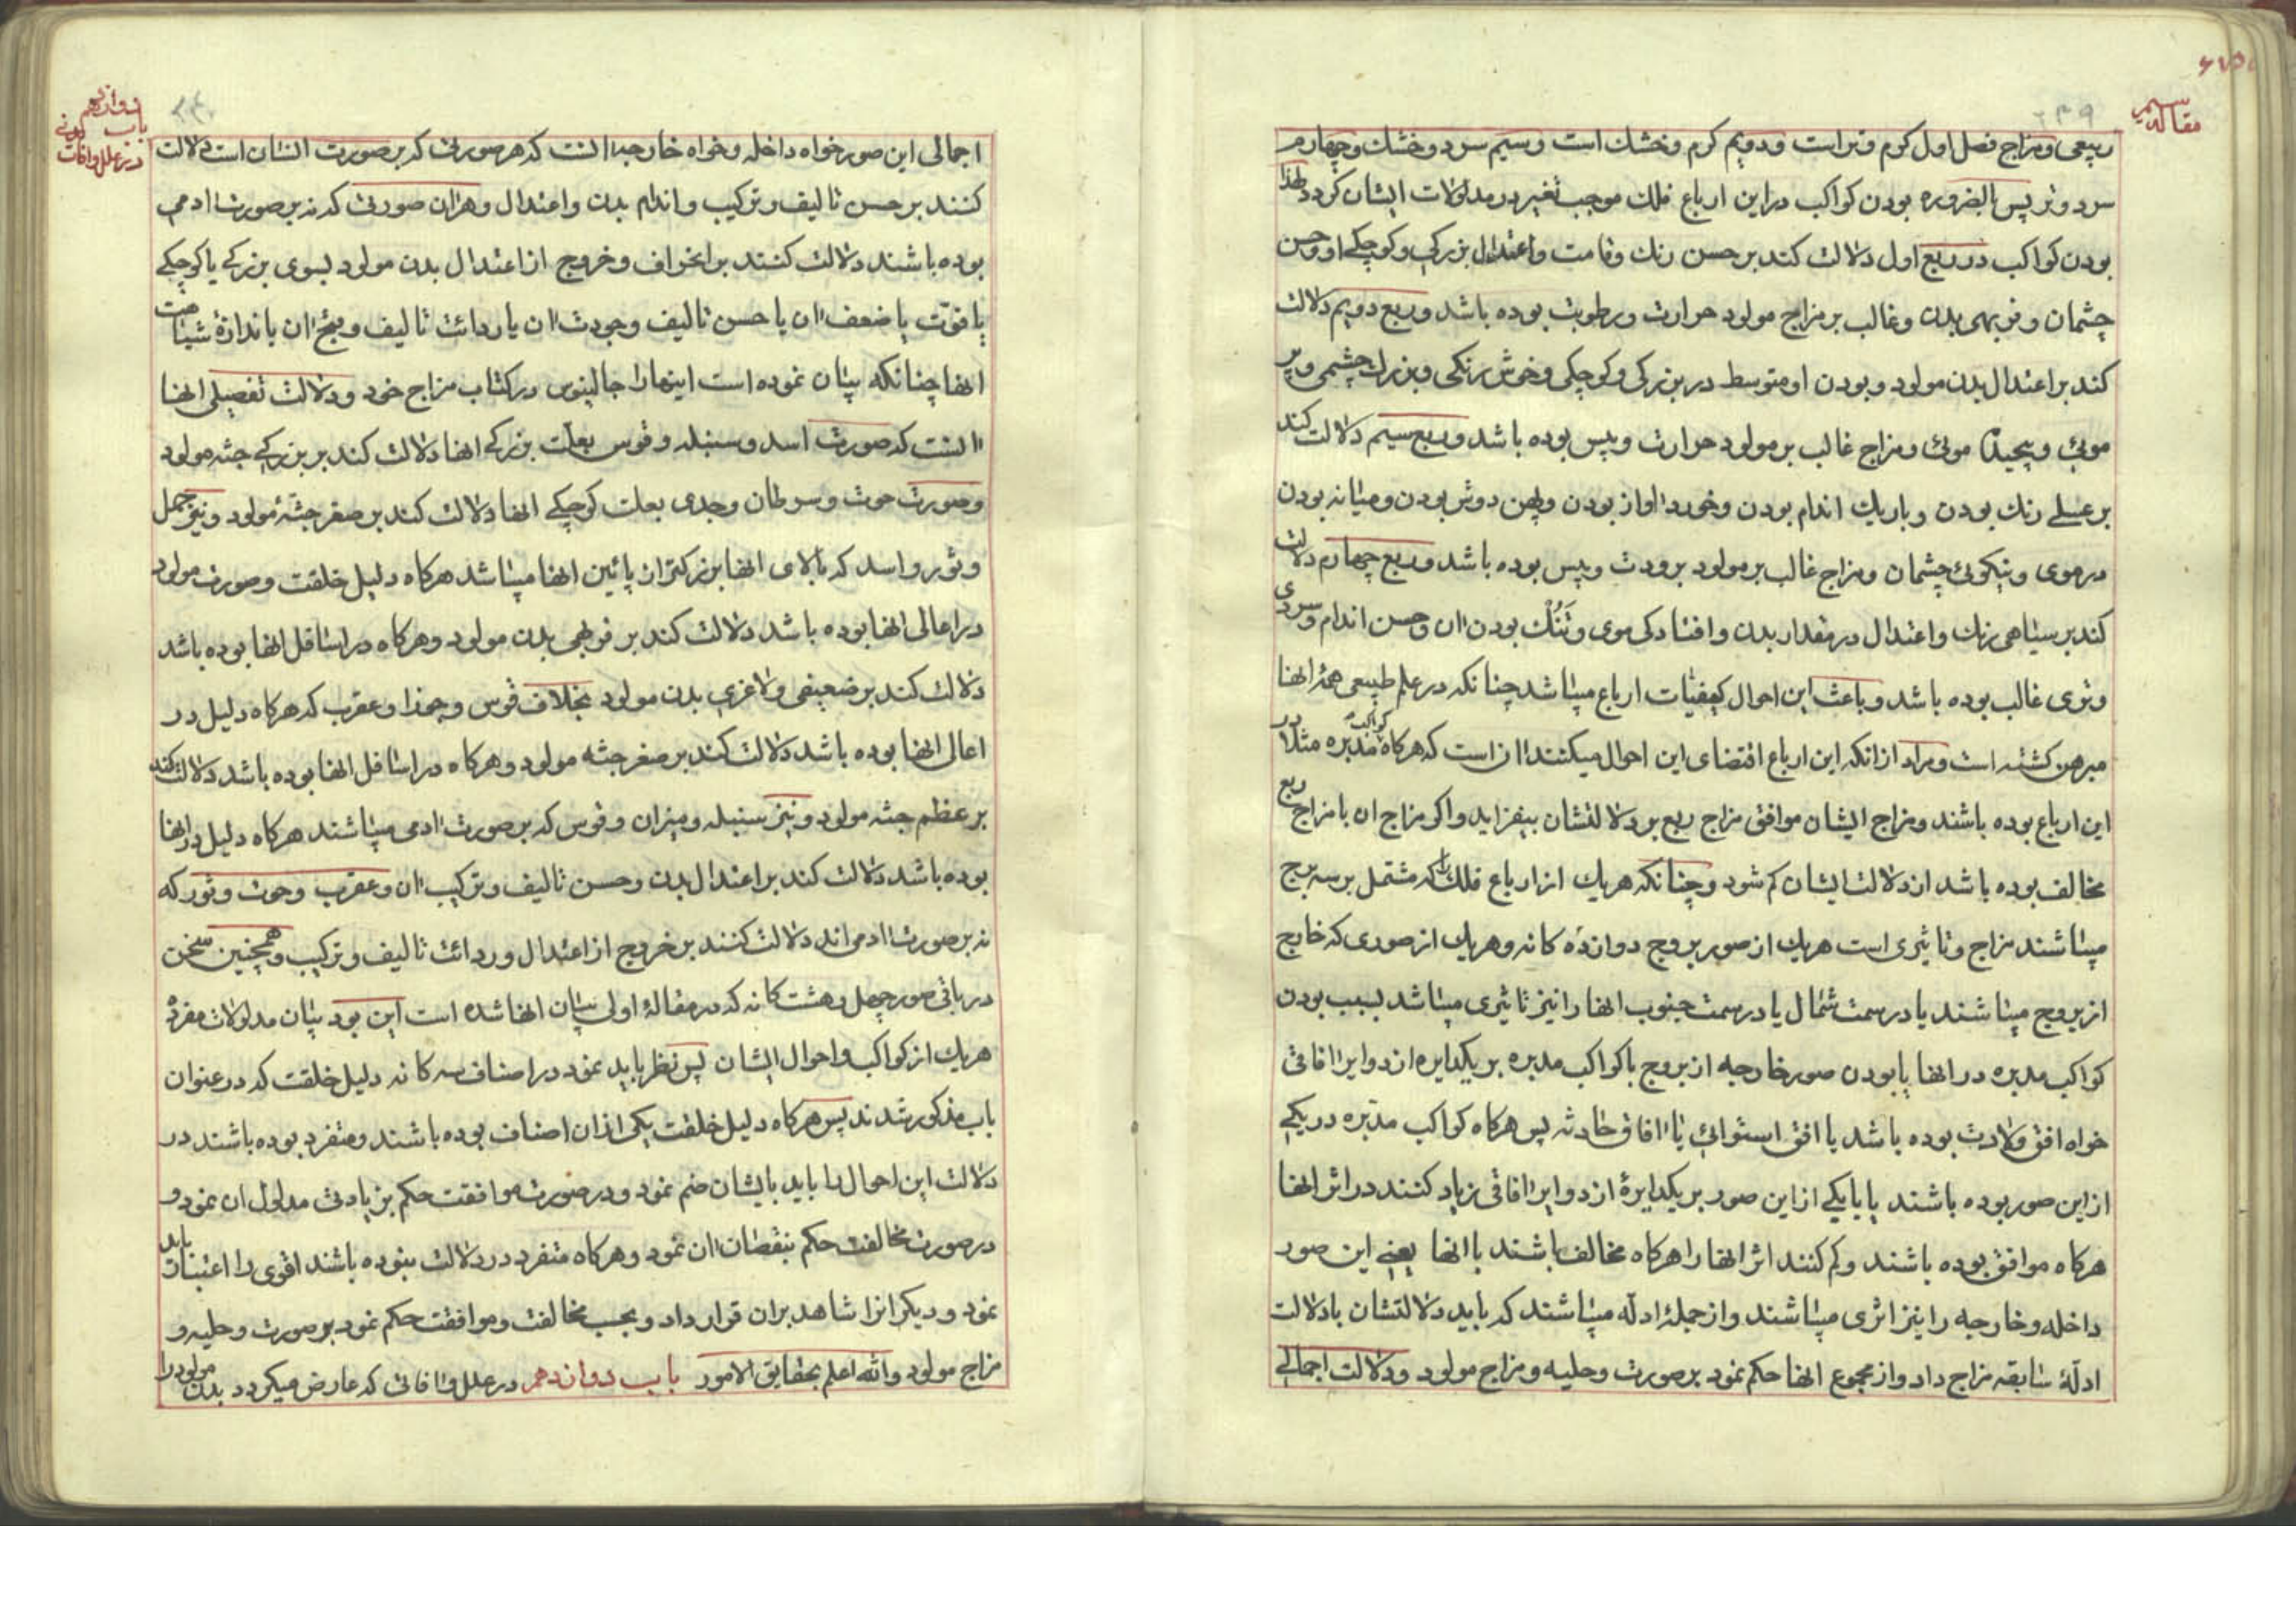 مقاله سیم
۲۳۹
ربیعی و مزاج فصل اول کرم و تر است و دویم کرم و خشک است و سیم سرد و خشک و چهارم
سرد و تر پس بالضروره بودن کواکب در این ارباع فلک موجب تغیر در مدلولات ایشان کردد لهذا
بودن کواکب در ربع اول دلالت کند بر حسن رنک و قامت و اعتدال بزرکی و کوچکی او و حسن
چشمان و فربهی بدن و غالب بر مزاج مولود حرارت و رطوبت بوده باشد و ربع دویم دلالت
کند بر اعتدال بدن مولود و بودن او متوسط در بزرکی و کوچکی و خوش رنکی و بزرک چشمی و پر
موئی و پیچیدن موئی و مزاج غالب بر مولود حرارت و یبس بوده باشد و ربع سیم دلالت کند
بر عسلی رنک بودن و باریک اندام بودن و خورد اواز بودن و پهن دوش بودن و میانه بودن
در موی و نیکوئی چشمان و مزاج غالب بر مولود برودت و یبس بوده باشد و ربع چهارم دلالت
کند بر سیاهی رنک و اعتدال در مقدار بدن و افتادکی موی و تنک بودن ان و حسن اندام و سردی
و تری غالب بوده باشد و باعث این احوال کیفیات ارباع میباشد چنانکه در علم طبیعی همهٔ انها
مبرهن کشته است و مراد از انکه این ارباع اقتضای این احوال میکنند ان است که هرکاه کواکب مدبره مثلا در
این ارباع بوده باشند و مزاج ایشان موافق مزاج ربع بود دلالتشان بیفزاید و اکر مزاج ان با مزاج ربع
مخالف بوده باشد از دلالت ایشان کم شود و چنانکه هریک از ارباع فلک را که مشتمل بر سه برج
میباشند مزاج و تاثیری است هریک از صور بروج دوازده کانه و هریک از صوری که خارج
از بروج میباشند یا در سمت شمال یا در سمت جنوب انها را نیز تاثیری میباشد بسبب بودن
کواکب مدبره در انها یا بودن صور خارجه از بروج با کواکب مدبره بر یکدایره از دوایر افاقی
خواه افق ولادت بوده باشد یا افق استوائی یا افاق حادثه پس هرکاه کواکب مدبره در یکی
از این صور بوده باشند یا با یکی از این صور بر یکدایرهٔ از دوایر افاقی زیاد کنند در اثر انها
هرکاه موافق بوده باشند و کم کنند اثر انها را هرکاه مخالف باشند با انها یعنی این صور
داخله و خارجه را نیز اثری میباشند و از جملهٔ ادله میباشند که باید دلالتشان با دلالت
ادلهٔ سابقه مزاج داد و از مجموع انها حکم نمود بر صورت و حلیه و مزاج مولود و دلالت اجمالی
باب دوازدهم
در علل و افات بدنی
۲۴۰
اجمالی این صور خواه داخله و خواه خارجه انست که هر صورتی که بر صورت انسان است دلالت
کنند بر حسن تالیف و ترکیب و اندام بدن و اعتدال و هر ان صورتی که نه بر صورت ادمی
بوده باشند دلالت کنند بر انحراف و خروج از اعتدال بدن مولود بسوی بزرکی یا کوچکی
یا قوت یا ضعف ان یا حسن تالیف و جودت ان یا ردائت تالیف و قبح ان باندازهٔ شباهت
انها چنانکه بیان نموده است اینها را جالینوس در کتاب مزاج خود و دلالت تفصیلی انها
انست که صورت اسد و سنبله و قوس بعلت بزرکی انها دلالت کند بر بزرکی جثه مولود
و صورت حوت و سرطان و جدی بعلت کوچکی انها دلالت کند بر صغر جثهٔ مولود و نیز حمل
و ثور و اسد که بالای انها بزرکتر از پائین انها میباشد هرکاه دلیل خلقت و صورت مولود
در اعالی انها بوده باشد دلالت کند بر فربهی بدن مولود و هرکاه در اسافل انها بوده باشد
دلالت کند بر ضعیفی و لاغری بدن مولود بخلاف قوس و جوزا و عقرب که هرکاه دلیل در
اعالی انها بوده باشد دلالت کند بر صغر جثه مولود و هرکاه در اسافل انها بوده باشد دلالت کند
بر عظم جثه مولود و نیز سنبله و میزان و قوس که بر صورت ادمی میباشند هرکاه دلیل در انها
بوده باشد دلالت کند بر اعتدال بدن و حسن تالیف و ترکیب ان و عقرب و حوت و ثور که
نه بر صورت ادمی اند دلالت کنند بر خروج از اعتدال و ردائت تالیف و ترکیب و همچنین سخن
در باقی صور چهل و هشت کانه که در مقالهٔ اولی بیان انها شده است این بود بیان مدلولات مفردهٔ
هریک از کواکب و احوال ایشان پس نظر باید نمود در اصناف سه کانه دلیل خلقت که در عنوان
باب مذکور شدند پس هرکاه دلیل خلقت یکی از ان اصناف بوده باشند و متفرد بوده باشند در
دلالت این احوال را باید بایشان ضم نمود و در صورت موافقت حکم بزیادتی مدلول ان نمود و
در صورت مخالفت حکم بنقصان ان نمود و هرکاه متفرد در دلالت نبوده باشند اقوی را اعتبار باید
نمود و دیکرانرا شاهد بر ان قرار داد و بحسب مخالفت و موافقت حکم نمود بر صورت و حلیه و
مزاج مولود والله اعلم بحقایق الامور باب دوازدهم در علل و افاتی که عارض میکردد بدن مولود را